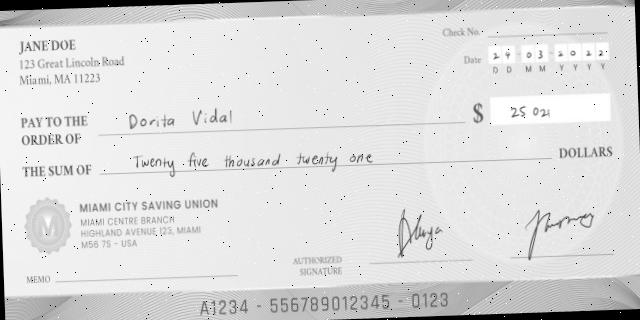 JANE DOE
123 Great Lincoln Road
Miami, MA 11223
Check No.
Date 24 03 2022
D D M M Y Y Y Y
PAY TO THE
ORDER OF Dorita Vidal $ 25 021
THE SUM OF Twenty five thousand twenty one DOLLARS
MIAMI CITY SAVING UNION
MIAMI CENTRE BRANCH
HIGHLAND AVENUE 123, MIAMI
M56 7S - USA
MEMO
AUTHORIZED
SIGNATURE
A1234 - 556789012345 - 0123